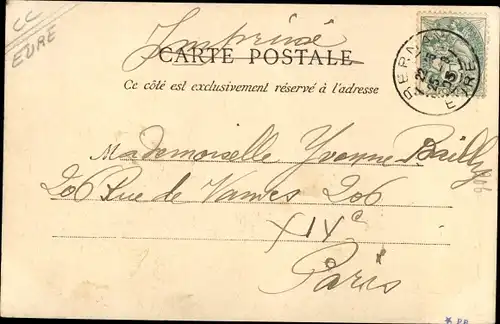 CC
EURE
Imprimé
CARTE POSTALE
Ce côté est exclusivement réservé à l'adresse
BERNAY
EURE
Mademoiselle Yvonne Bailly
206 Rue de Vanves 206
XIVe
Paris